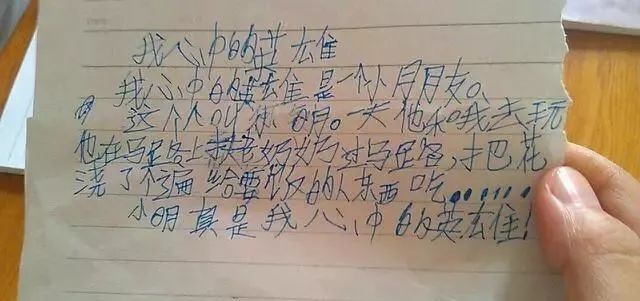 我心中的英雄
我心中的英雄是一个小月月友。
这个人叫小明。一天他和我去玩
他在马足各上扶老奶奶过马足各,才巴花
浇了不遍给要饭的人东西吃,......
小明真是我心中的英雄!